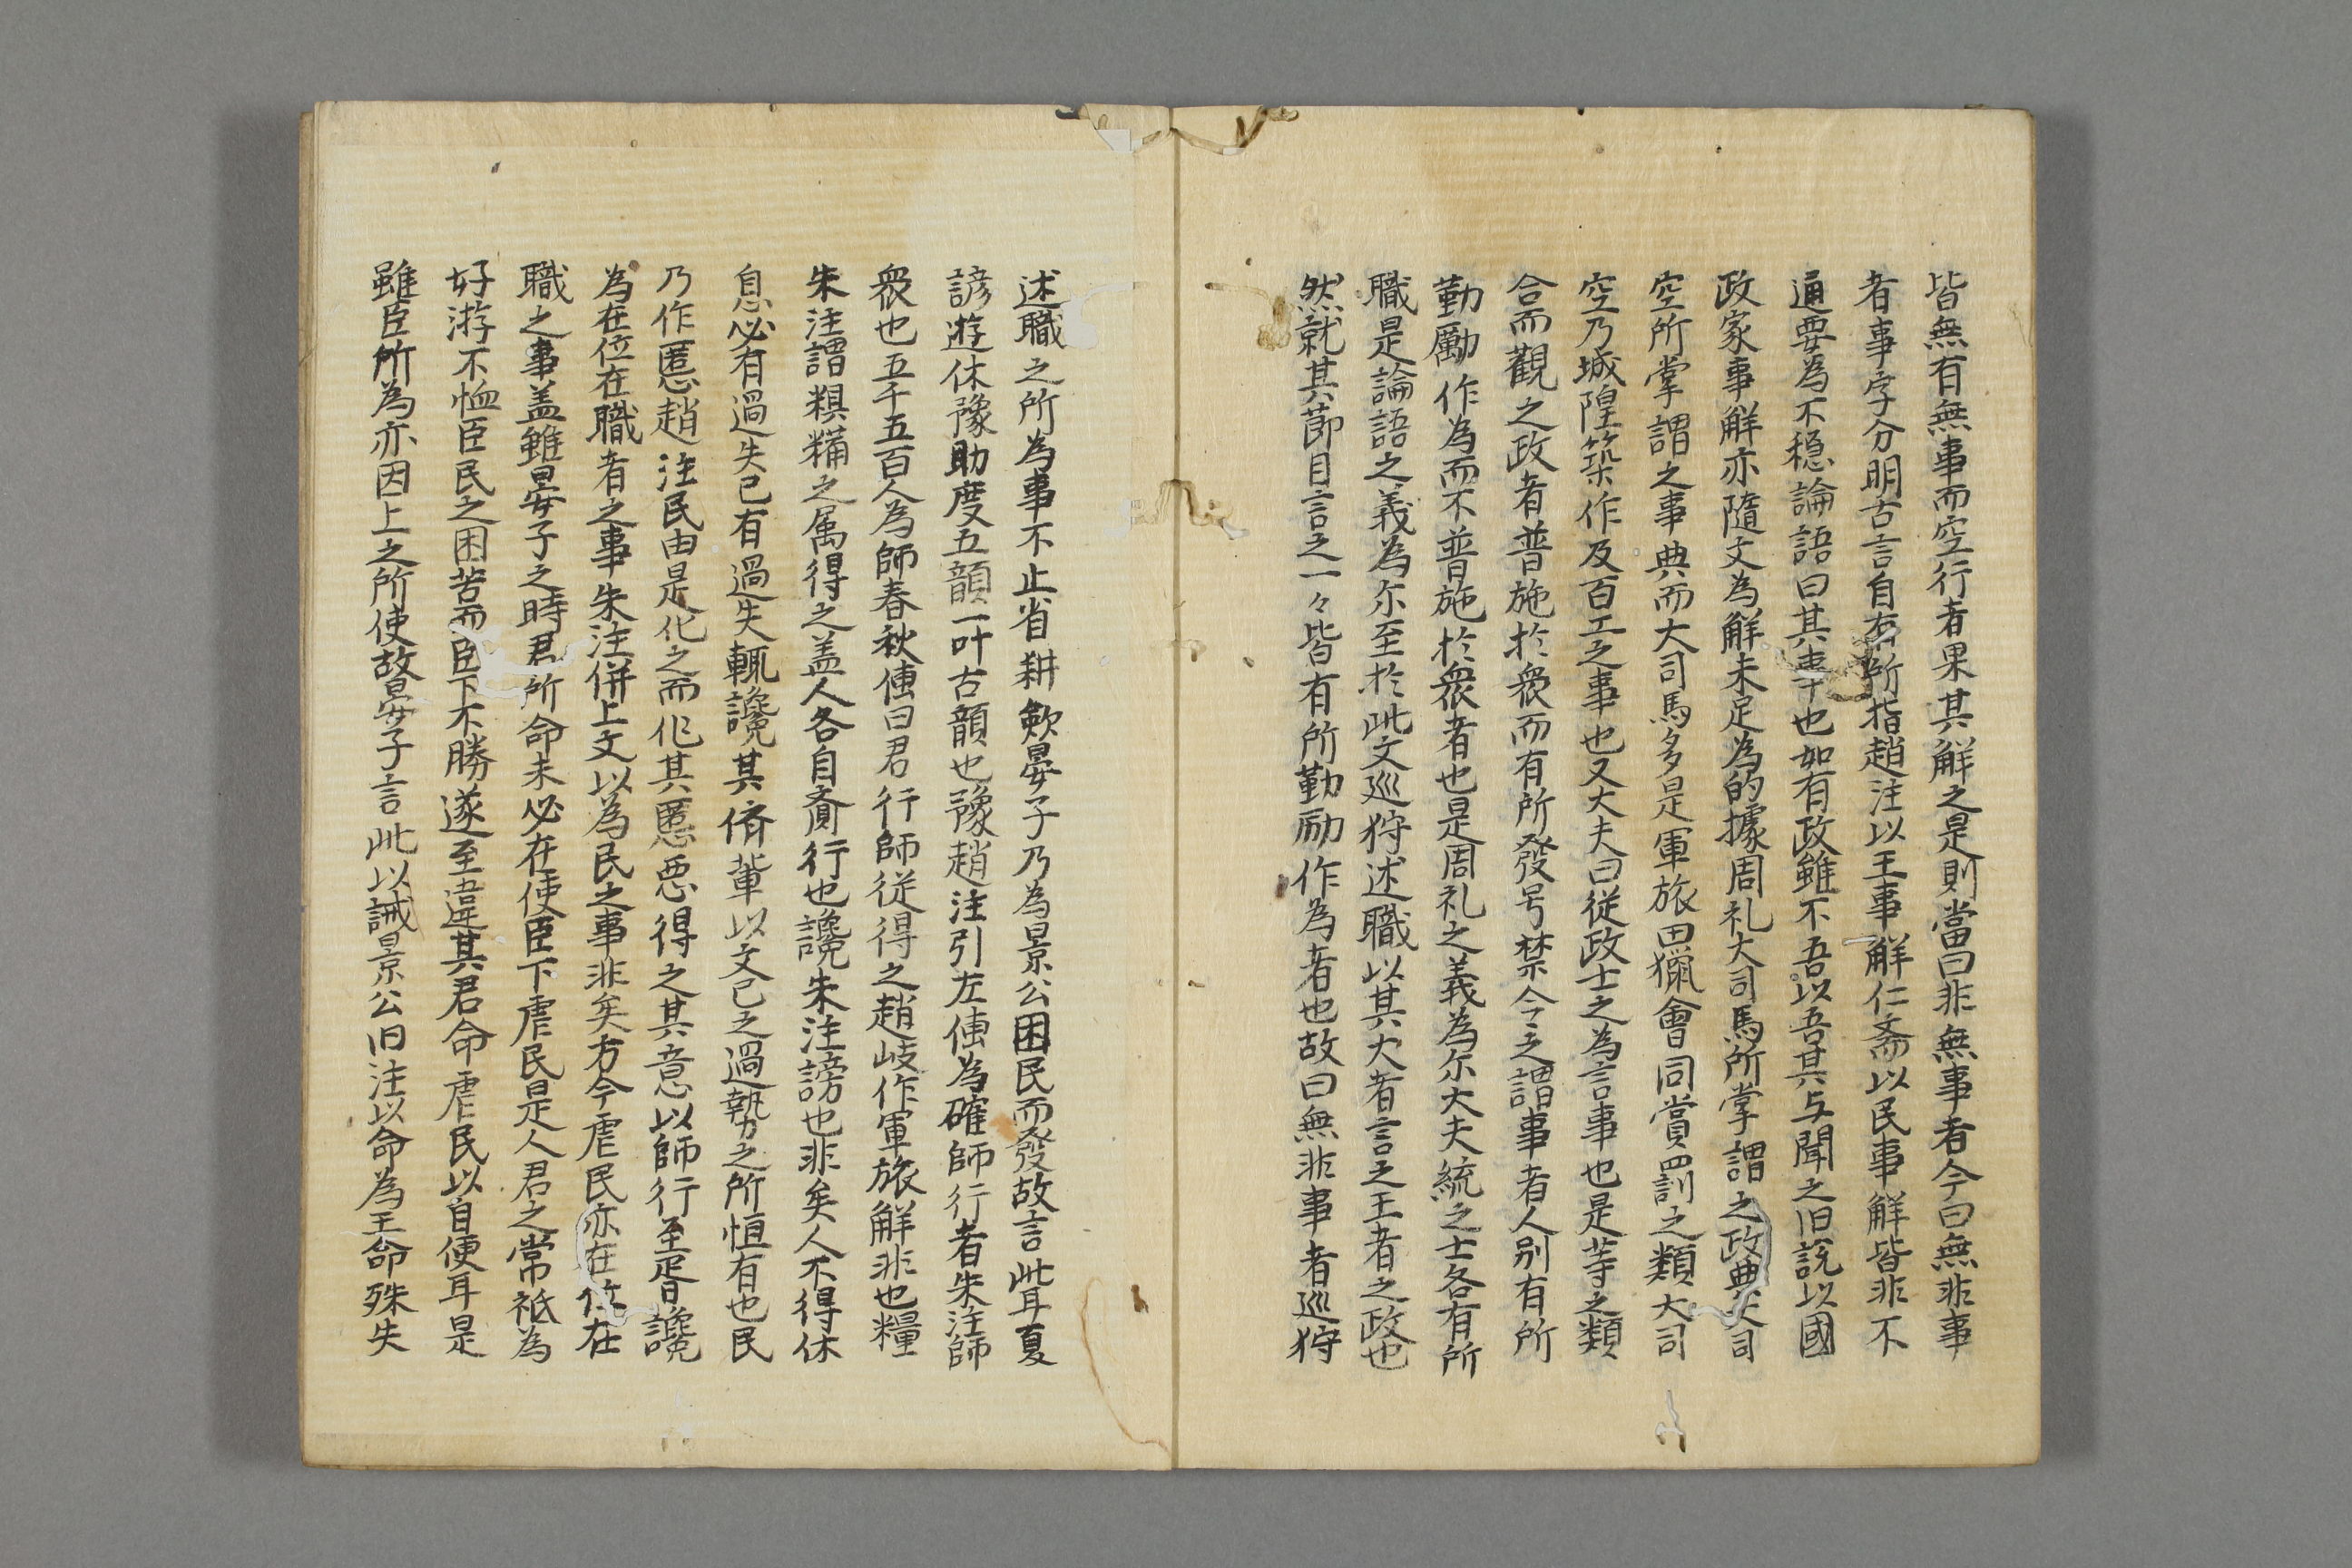 皆無有無事而空行者果其解之是則當曰非無事者今曰無非事
者事字分明古言自有所指趙注以王事解仁斎以民事解皆非不
通要為不穏論語曰其事也如有政雖不吾以吾其与聞之旧説以國
政家事解亦隨文為解未足為的據周礼大司馬所掌謂之政典大司
空所掌謂之事典而大司馬多是軍旅田獵會同賞罰之類大司
空乃城隍築作及百工之事也又大夫曰従政士之為言事也是等之類
合而觀之政者普施於衆而有所發号禁令之謂事者人別有所
勤勵作為而不普施於衆者也是周礼之義為尓大夫統之士各有所
職是論語之義為尓至於此文巡狩述職以其大者言之王者之政也
然就其莭目言之一々皆有所勤励作為者也故曰無非事者巡狩
述職之所為事不止省耕歛晏子乃為景公困民而發故言此耳夏
諺遊休豫助度五韻一叶古韻也豫趙注引左傳為確師行者朱注師
衆也五千五百人為師春秋傳曰君行師従得之趙岐作軍旅解非也糧
朱注謂糗糒之属得之盖人各自齎行也讒朱注謗也非矣人不得休
息必有過失已有過失輒讒其儕輩以文己之過勢之所恒有也民
乃作慝趙注民由是化之而作其慝悪得之其意以師行至胥讒
為在位在職者之事朱注併上文以為民之事非矣方今虐民亦在位在
職之事盖雖晏子之時君所命未必在使臣下虐民是人君之常祗為
好游不恤臣民之困苦而臣下不勝遂至違其君命虐民以自便耳是
雖臣所為亦因上之所使故晏子言此以誡景公旧注以命為王命殊失